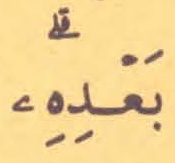 بَعْدِهِۦ ۗ